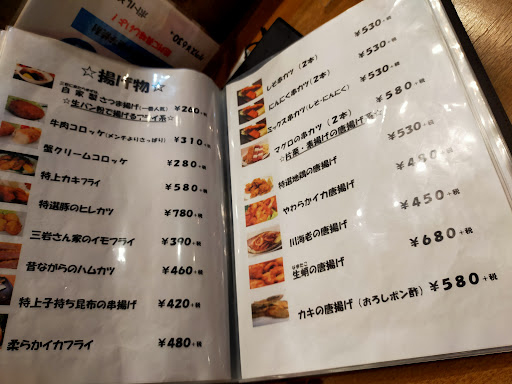 ☆揚げ物☆
自家製さつま揚げ(一番人気) ￥260+税
☆生パン粉で揚げるフライ系☆
牛肉コロッケ(メンチよりさっぱり) ￥310+税
蟹クリームコロッケ ￥280+税
特上カキフライ ￥580+税
特選豚のヒレカツ ￥780+税
三岩さん家のイモフライ ￥390+税
昔ながらのハムカツ ￥460+税
特上子持ち昆布の串揚げ ￥420+税
柔らかイカフライ ￥480+税
￥530+税
しそ串カツ(2本) ￥530+税
にんにく串カツ(2本) ￥530+税
ミックス串カツ(しそ・にんにく) ￥580+税
マグロの串カツ(2本)
☆片栗・素揚げの唐揚げ系☆
特選地鶏の唐揚げ ￥530+税
やわらかイカ唐揚げ ￥490+税
川海老の唐揚げ ￥450+税
生蛸の唐揚げ ￥680+税
カキの唐揚げ(おろしポン酢) ￥580+税